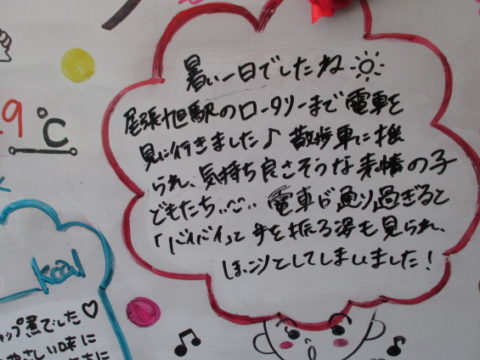 暑い一日でしたね
尾張旭駅のロータリーまで電車を
見に行きました♪ 散歩車に揺
られ、気持ち良さそうな表情の子
どもたち... 電車が通り過ぎると
「バイバイ」って手を振る姿も見られ、
ほっこりとしてしまいました!
9℃
kcal
ップ煮でした♡
やさしい味に